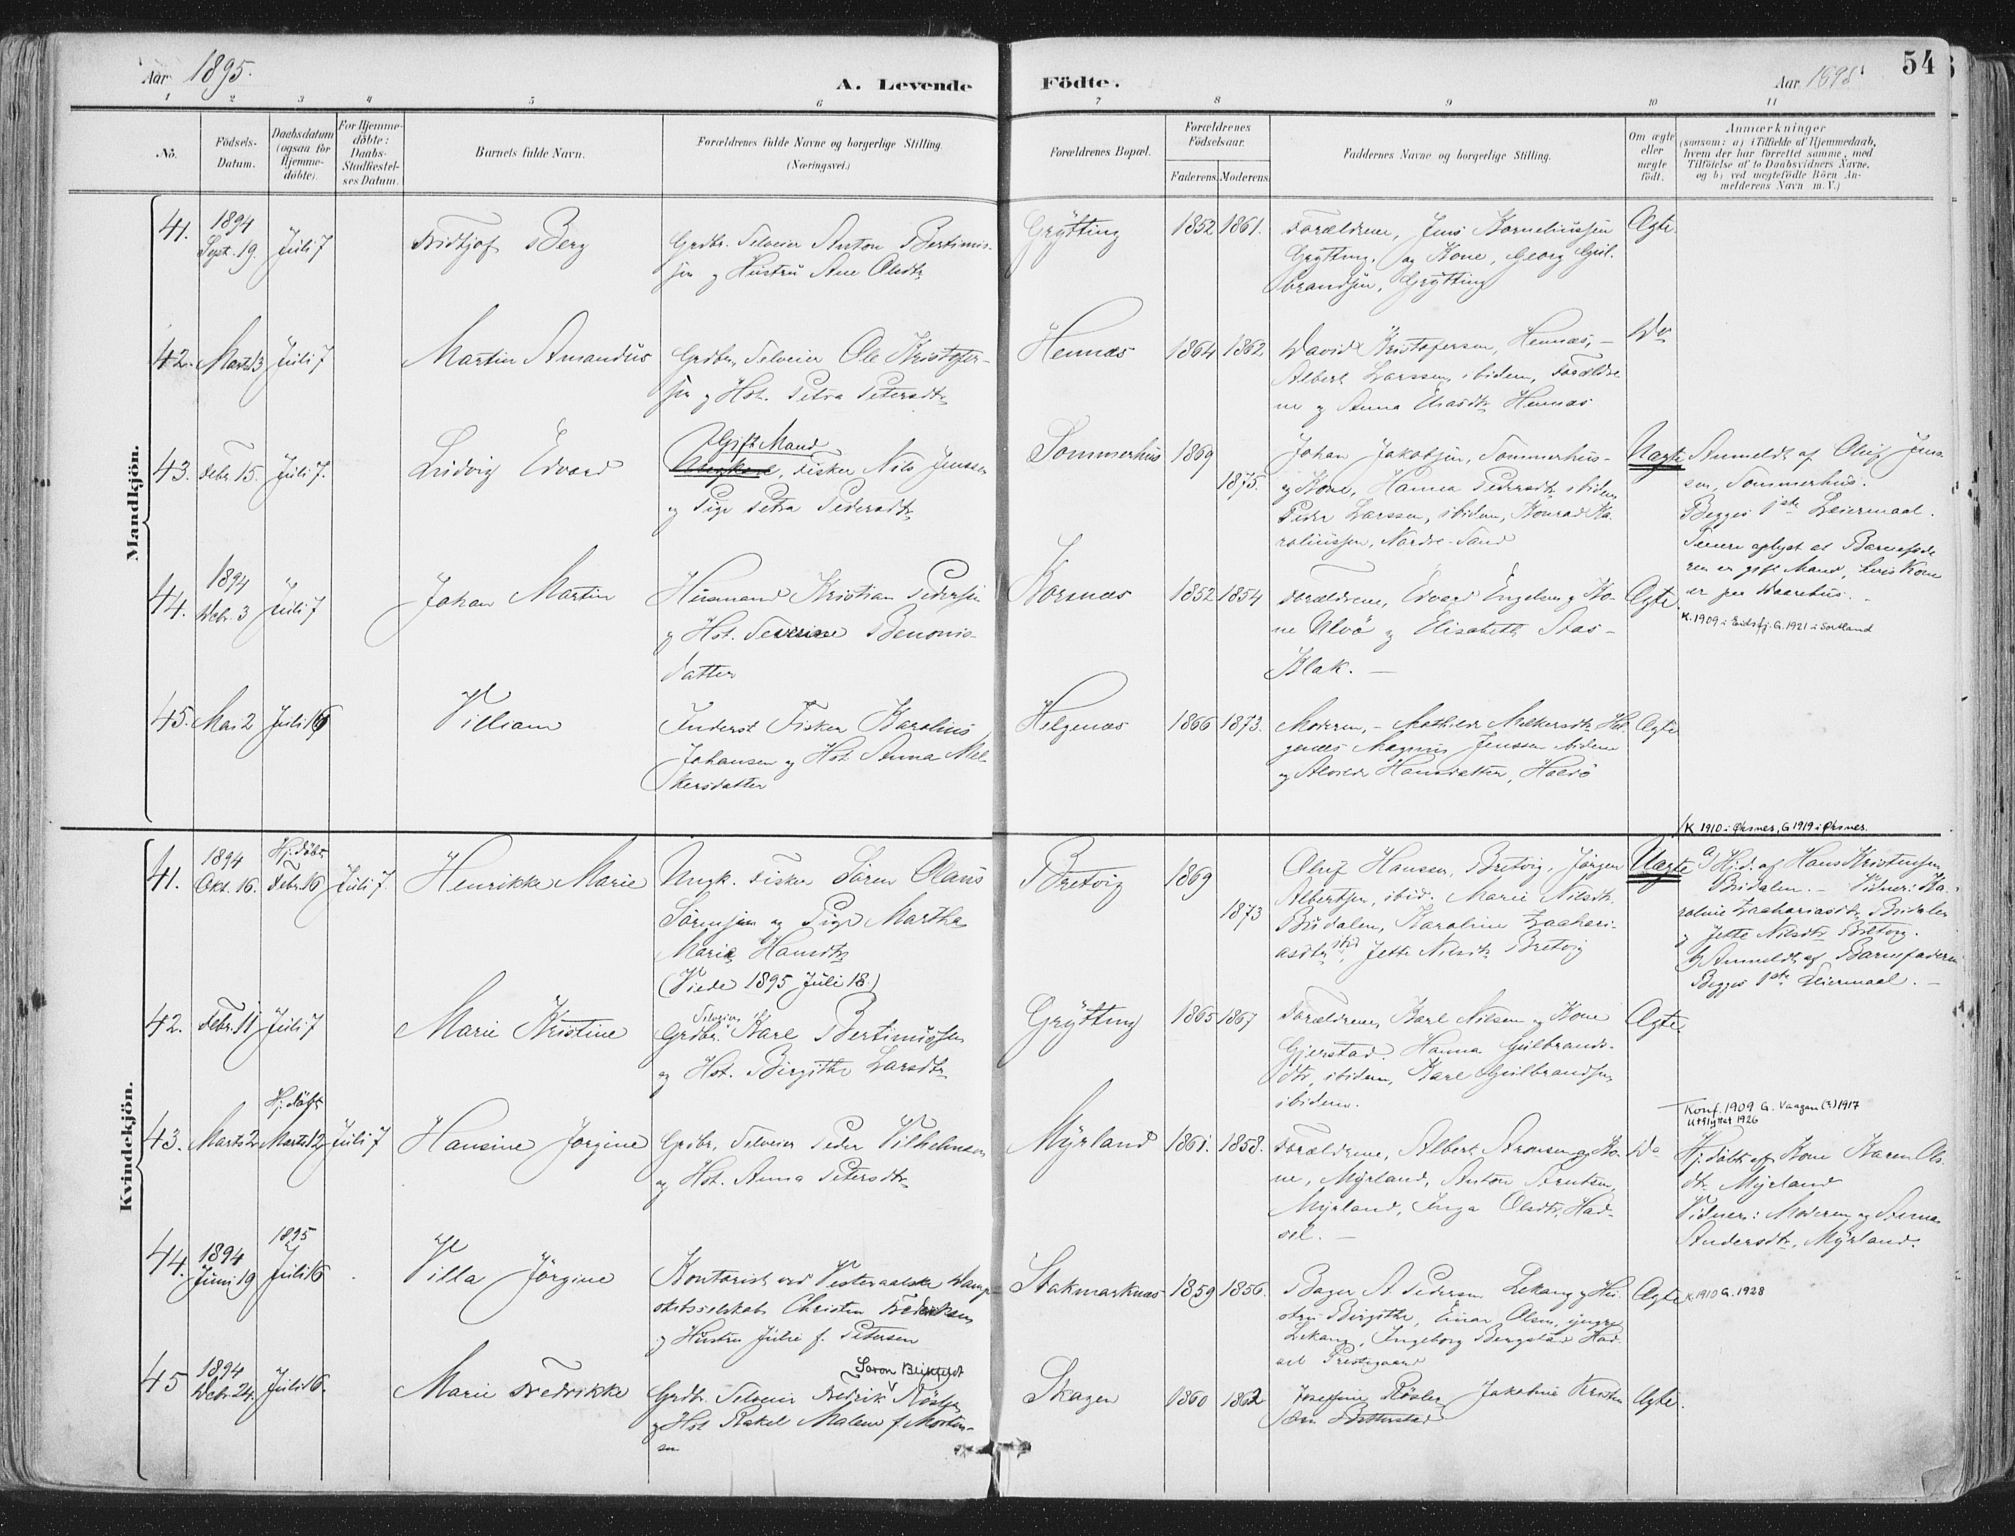 54
Aar 1895.
A. Levende Födte.
Aar 1895
1 2 3 4 5 6 7 8 9 10 11
No.
Födsels-
Datum.
Daabsdatum
(ogsaa for
Hjemme-
döbte).
For Hjemme-
döbte:
Daabs-
Stadfæstel-
ses Datum.
Barnets fulde Navn.
Forældrenes fulde Navne og borgerlige Stilling.
(Næringsvei.)
Forældrenes Bopæl.
Forældrenes
Födselsaar.
Faderens.
Moderens.
Faddernes Navne og borgerlige Stilling.
Om ægte
eller
uægte
födt.
Anmærkninger
(saasom: a) i Tilfælde af Hjemmedaab,
hvem der har forrettet samme, med
Tilföielse af to Daabsvidners Navne,
og b) ved uægtefödte Börn An-
melderens Navn m. V.)
Mandkjön.
41.
1894
Sept. 19.
Juli 7
Fridtjof Berg
Grdbr. Selveier Anton Bertinus-
sen og Hustru Ane Olsdtr
Grytting
1852 1861.
Forældrene, Jens Korneliussen
Grytting, og Kone, Georg Gul-
brandsen, Grytting
Ægte
42. Marts 3 Juli 7
Martin Amandus
Grdbr. Selveier Ole Kristofer-
sen og Hst. Petra Petersdtr
Hennæs
1864 1862
David Kristofersen, Hennæs, -
Albert Larssen, ibidem, Forældre
ne og Anna Hennæs
Do
43. Febr. 15. Juli 7.
Ludvig Edvard
Gift Mand
Ungkarl, Fisker Nils Jenssen
og Pige Petra Pedersdtr
Sommerhus
1869
1875.
Johan Jakobsen, Sommerhus-
og Kone, Hanna Pedersdtr ibidem
Peder Larssen, ibidem, Konrad Ka-
roliussen, Nordre-Sand
Uægte
Anmeldt af Oluf Jens-
sen, Sommerhus.
Begges 1ste Leiermaal.
Senere oplyst at Barnefade
ren er gift Mand, hvis Kone
er paa
44.
1894
Debr. 3
Juli 7
Johan Martin
Husmand Kristian Pedersen
og Hst. Severine Benonis-
datter
Kornæs
1852 1854
Forældrene, Edvard Engelsen og Ko-
ne Ulvö og Elisabeth Stas-
Klak. -
Ægte
K. 1909 i Eidsfj. G. 1921 i Sortland
45. Mai 2 Juli 16
Villiam
Inderst Fisker Karolius
Johansen og Hst. Anna Mel
kersdatter
Helgenæs
1866 1873.
Moderen, - Mathilde Melkersdtr Hel
genæs Magnus Jenssen ibidem
og Hansdatter, Hadsö
Ægte
Kvindekjön.
K 1910 i Øksnes, G 1919 i Øksnes.
41.
1894
Okt. 16.
Hj. döbt
Febr. 16
Juli 7
Henrikke Marie
Ungk. Fisker Sören Olaus
Sörensen og Pige Martha
Maria Hansdtr
(Viede 1895 Juli 18)
Bretvig
1869
1873
Oluf Hanssen, Bretvig, Jörgen
Albertsen, ibid. Marie Nilsdtr
Budalen, Karoline Zachari-
asdtr ibid, Jette Nilsdtr Bretvig
Uægte
a) Hjd. af Hans Kristensen
Budalen. - Vidner: Ka-
roline Zachariasdtr Budalen
og Jette Nilsdtr Bretvig.
b) Anmeldt af Barnefaderen
Begges 1ste Leiermaal. -
42. Febr. 11 Juli 7
Marie Kristine
Selveier
Grdbr. Karl Bertinussen
og Hst. Birgithe Larsdtr
Grytting
1865 1867
Forældrene, Karl Nilsen og Kone
Gjerstad. Hanna Gulbrands-
dtr, ibidem, Karl Gulbrandsen
ibidem.
Ægte
Konf. 1909 G. Vaagan (?) 1917
Utflyttet 1926
43. Marts 2
Hj. döbt
Marts 12
Juli 7
Hansine Jörgine
Grdbr. Selveier Peder Vilhelmsen
og Hst. Anna Petersdtr
Myrland
1861. 1858.
Forældrene, Albert Aronsen og Ko-
ne, Myrland, Anton Arntsen,
Myrland, Inga Olsdtr, Had-
sel. -
Do
Hj. döbt af Kone Karen Ols
dtr Myrland
Vidner: Moderen og Anna
Andersdtr, Myrland.
44.
1894
Juni 19
1895
Juli 16
Villa Jörgine
Kontorist ved Vesteraalske Damp
skibsselskab Christen Fredriksen
og Hustru Julie f. Petersen
Stokmarknæs
1859 1856.
Bager A Pedersen Lekang og Hu-
stru Birgithe, Einar Olsen, yngre
Lekang, Ingeborg Bergstad Had-
sel Prestegaard
Ægte
K. 1910 G. 1928
45
1894
Debr. 24.
Juli 16.
Marie Fredrikke
Soron Blikfeldt
Grdbr Selveier Fredrik Rösler
og Hst Rakel Malene f. Morten-
sen
Skagen
1860 1862
Josefine Rösler Jakobine Kristen
sen
Ægte.